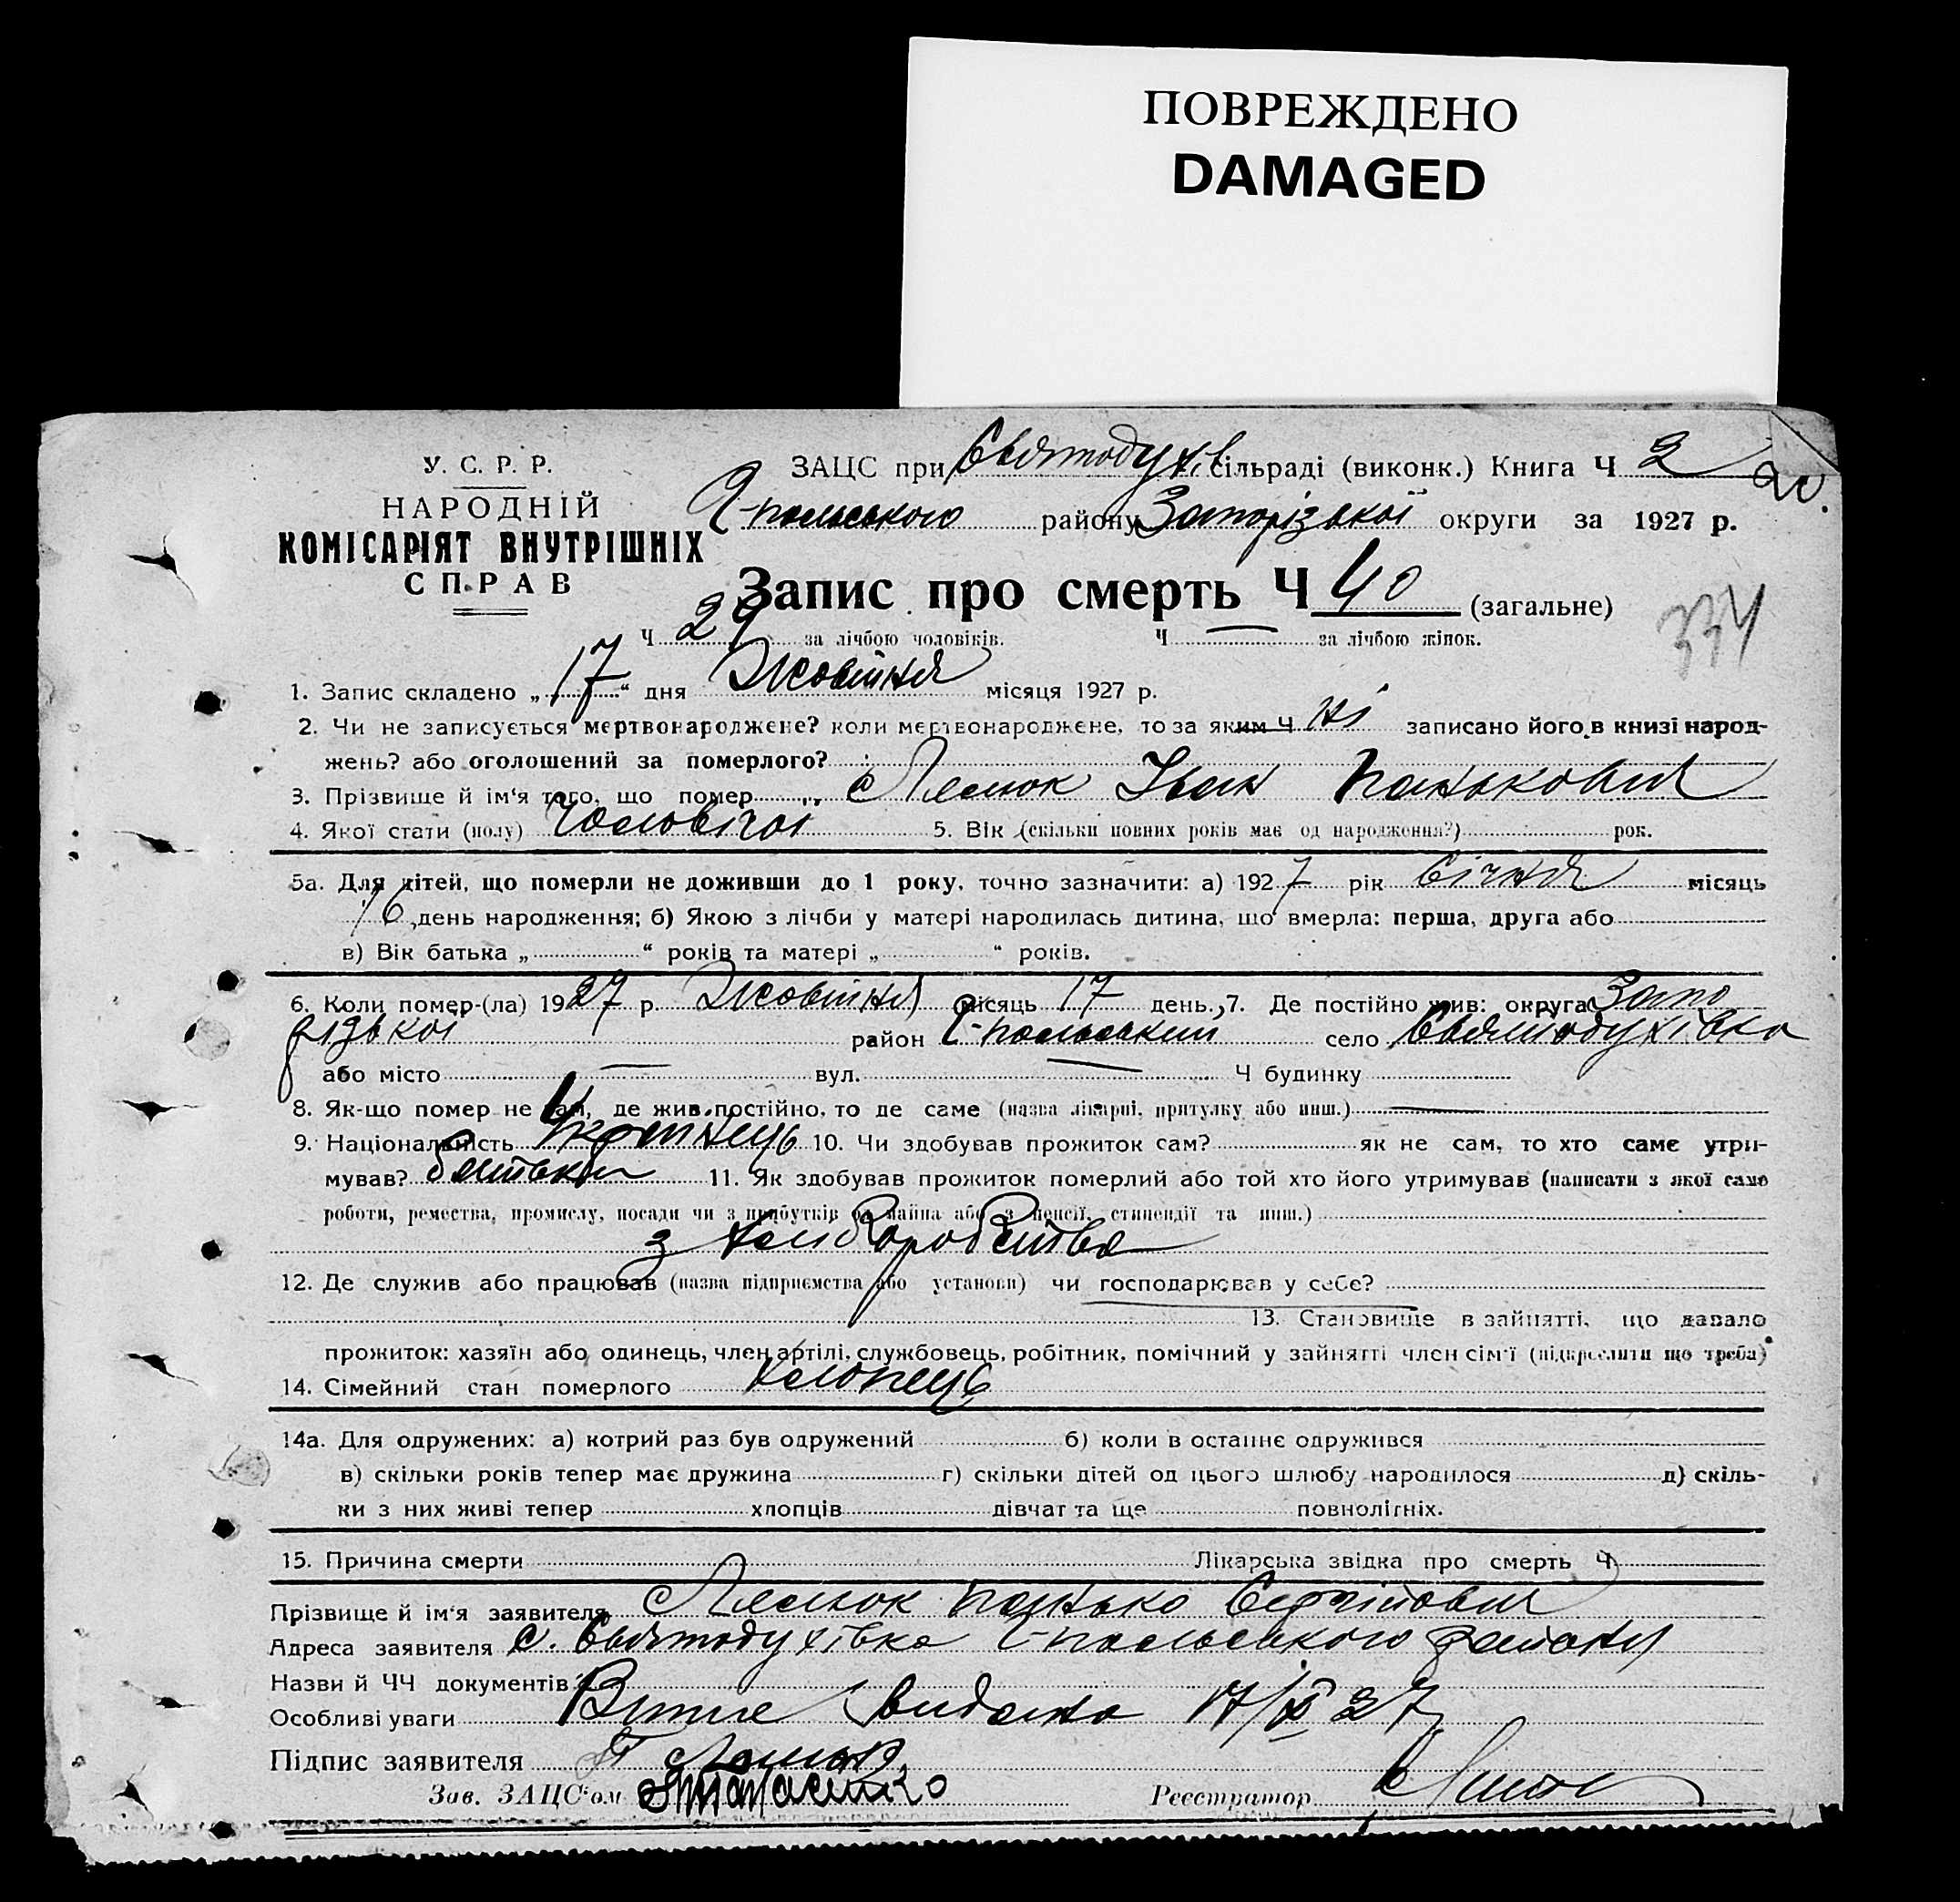 ПОВРЕЖДЕНО
DAMAGED
У. С. Р. Р.
НАРОДНІЙ
КОМІСАРІЯТ ВНУТРІШНІХ
СПРАВ
ЗАЦС при Святодухів сільраді (виконк.) Книга Ч 2
польського району Запорізької округи за 1927 р.
Запис про смерть Ч 40 (загальне)
334
Ч 29 за лічбою чоловіків. Ч — за лічбою жінок.
1. Запис складено „ 17 “ дня Жовтня місяця 1927 р.
2. Чи не записується мертвонароджене? коли мертвонароджене, то за яким Ч ні записано його в книзі народ-
жень? або оголошений за померлого?
3. Прізвище й ім‘я того, що помер Іван Панькович
4. Якої стати (полу) Чоловічої 5. Вік (скільки повних років має од народження?) рок.
5а. Для дітей, що померли не доживши до 1 року, точно зазначити: а) 1927 рік Січня місяць
16 день народження; б) Якою з лічби у матері народилась дитина, що вмерла: перша, друга або
в) Вік батька „ “ років та матері „ “ років.
6. Коли помер-(ла) 1927 р. Жовтня місяць 17 день. 7. Де постійно жив: округа Запо
різької район польський село Святодухівка
або місто — вул. — Ч будинку
8. Як-що помер не там, де жив постійно, то де саме (назва лікарні, притулку або инш.) —
9. Національність Українець 10. Чи здобував прожиток сам? як не сам, то хто саме утри-
мував? батьки 11. Як здобував прожиток померлий або той хто його утримував (написати з якої само
роботи, ремества, промислу, посади чи з прибутків од майна або з пенсії, стипендії та инш.)
з хліборобства
12. Де служив або працював (назва підприємства або установи) чи господарював у себе?
13. Становище в зайнятті, що давало
прожиток: хазяїн або одинець, член артілі, службовець, робітник, помічний у зайнятті член сім‘ї (підкреслити що треба)
14. Сімейний стан померлого хлопець
14а. Для одружених: а) котрий раз був одружений б) коли в останнє одружився
в) скільки років тепер має дружина г) скільки дітей од цього шлюбу народилося д) скіль-
ки з них живі тепер хлопців дівчат та ще повнолітніх.
15. Причина смерти Лікарська звідка про смерть Ч
Прізвище й ім‘я заявителя Панько Сергійович
Адреса заявителя с. Святодухівка польського району
Назви й ЧЧ документів
Особливі уваги видана 17/X 27
Підпис заявителя
Зав. ЗАЦС‘ом
Реєстратор